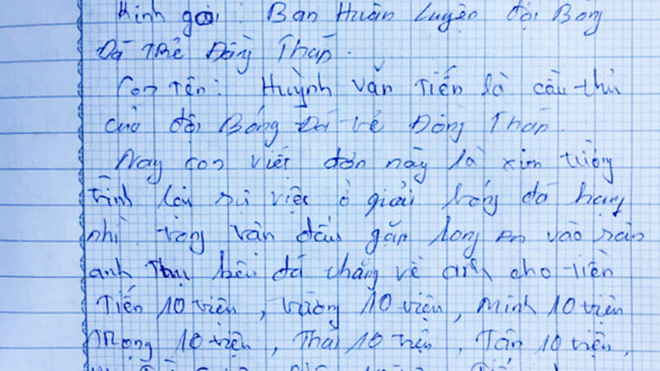 Kính gởi : Ban Huấn Luyện đội Bóng
Đá trẻ Đồng Tháp.
Con tên : Huỳnh văn Tiến là cầu thủ
của đội Bóng Đá trẻ Đồng Tháp.
Nay con viết đơn này là xin tường
trình lại sự việc ở giải bóng đá hạng
nhì trong trận đấu gặp long An vào sân
anh Thụ kêu đá thắng về anh cho tiền
Tiến 10 triện, vương 10 triện, Minh 10 triện
Trọng 10 triện, Thái 10 triện, Tân 10 triện,